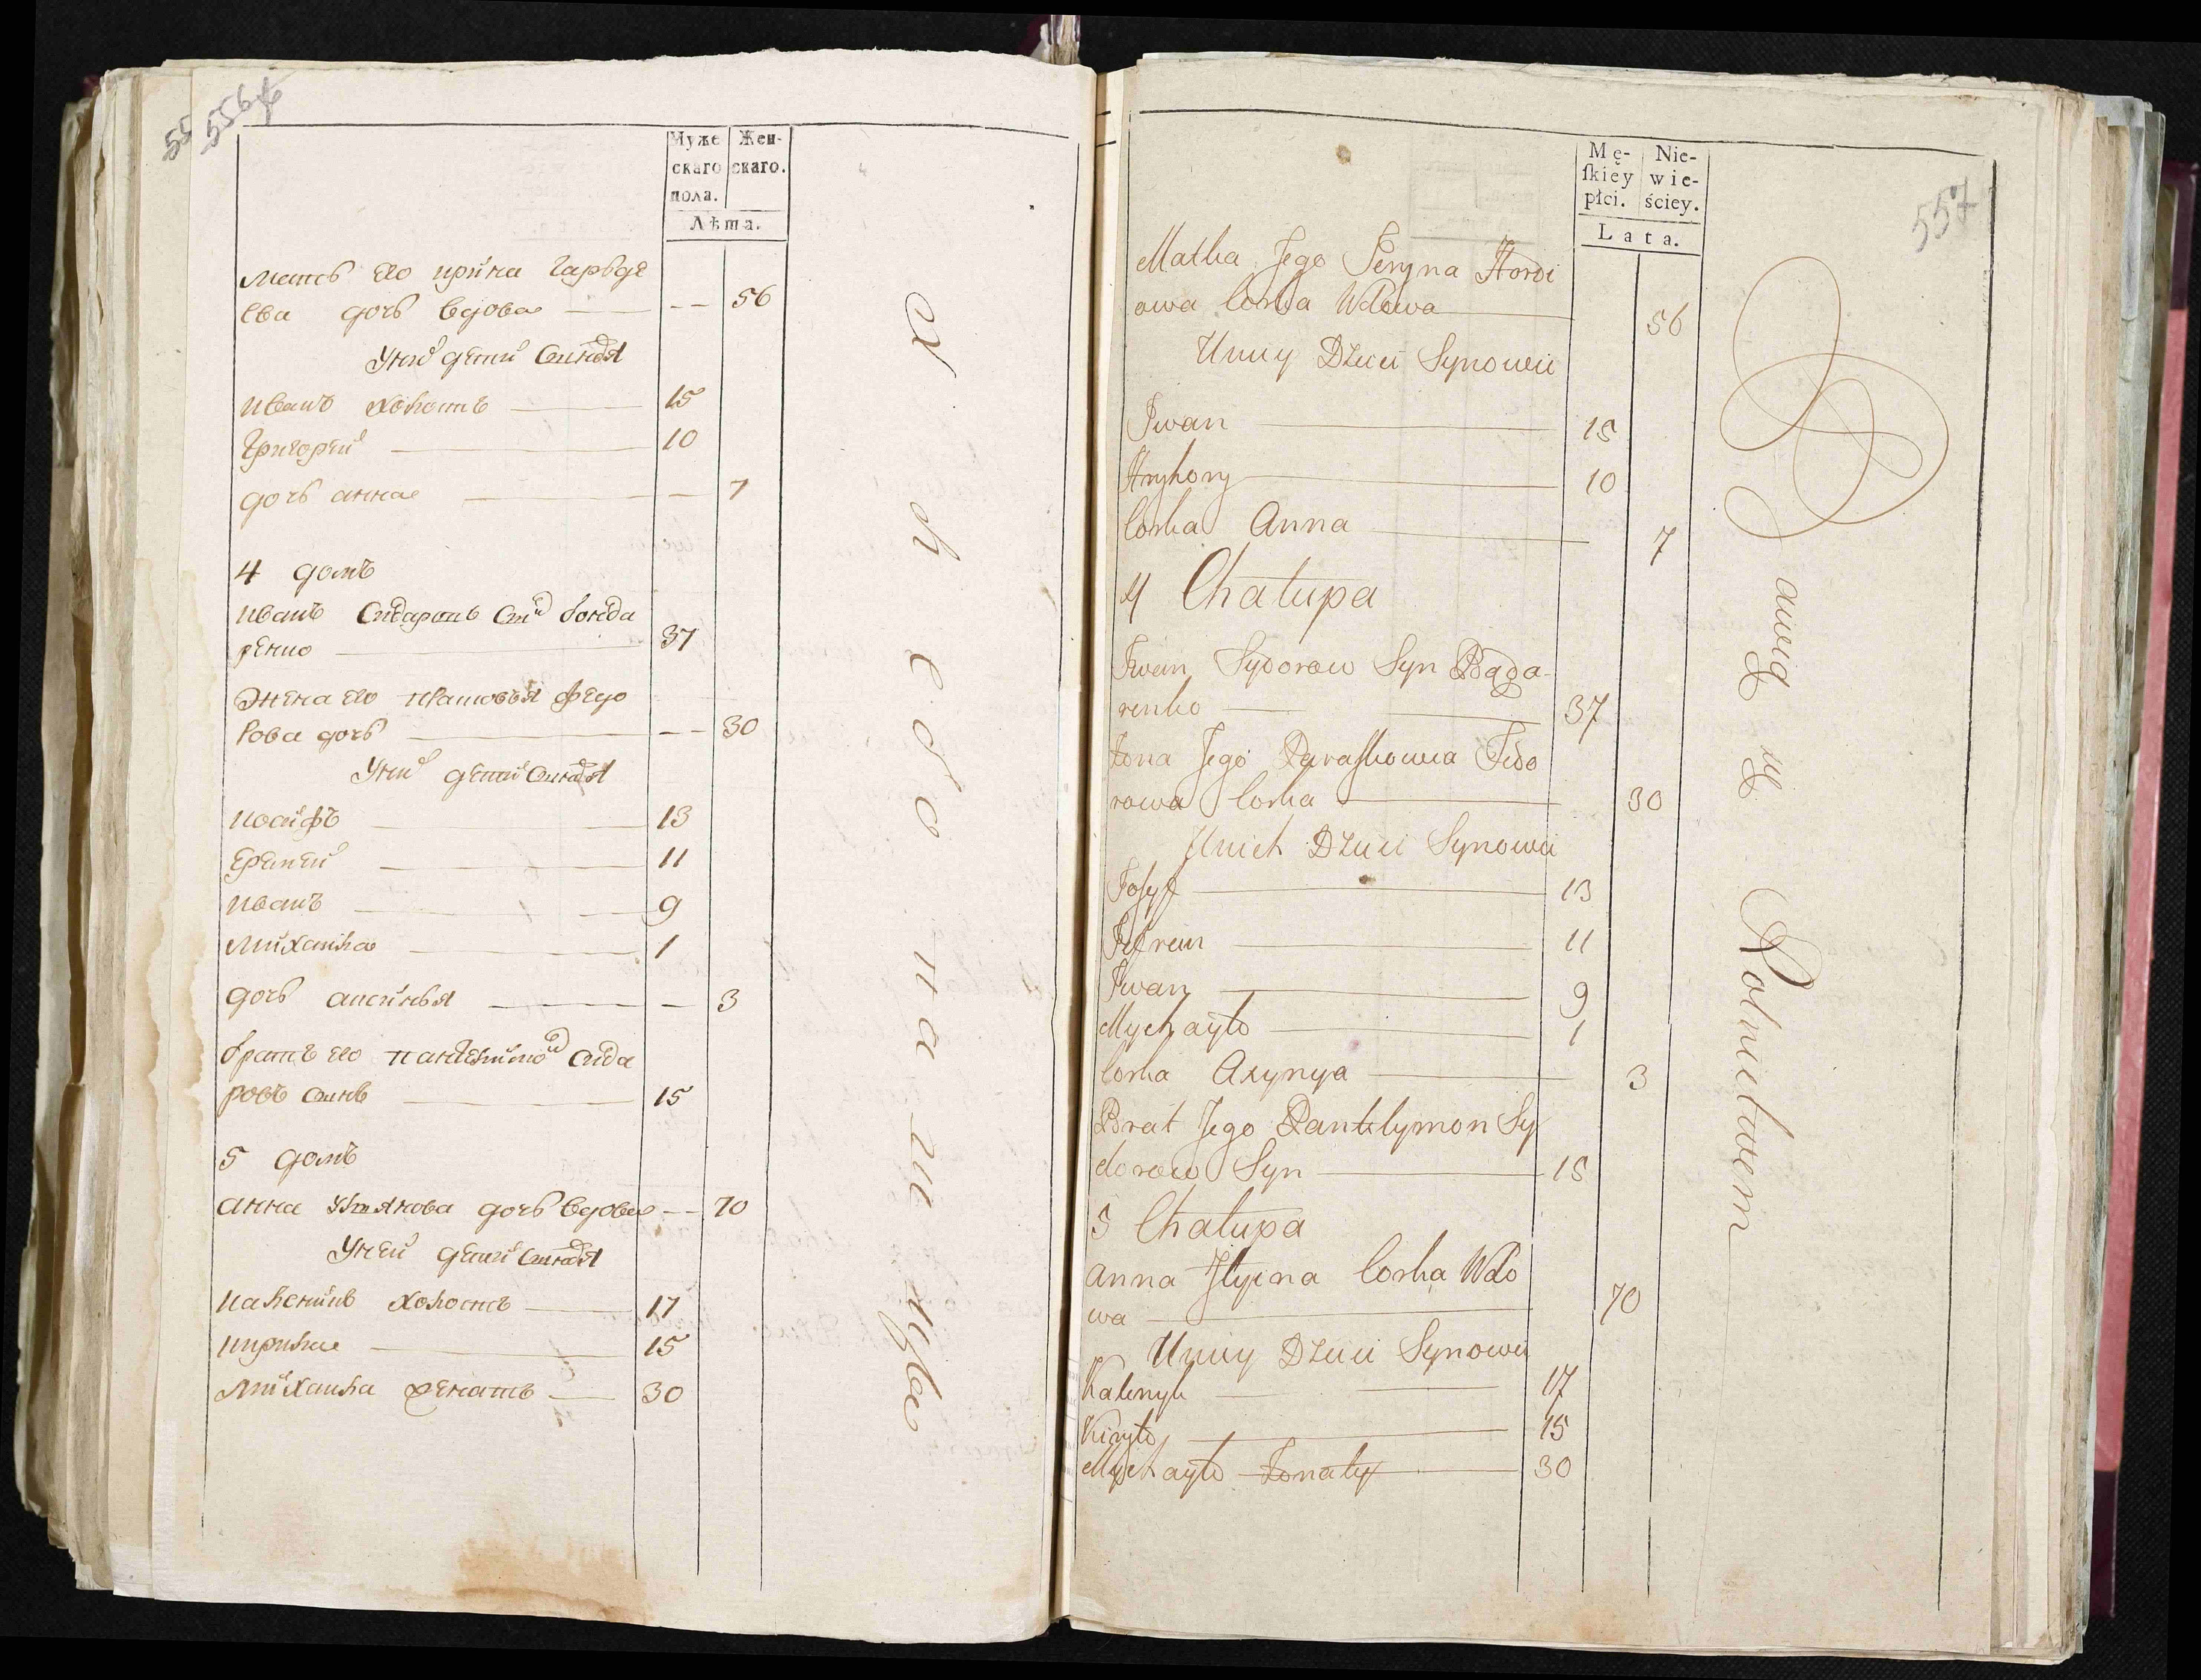 556
Муже
скаго
пола.
Жен-
скаго.
Лѣта.
мать его ирина гарьде
ева дочь вдова — 56
У ней детей синовя
иванъ холостъ — 15
Григорей — 10
дочь анна — 7
4 домъ
иванъ Сидаровъ синъ бонда
ренко — 37
Жена его прасковья федо
рова дочь — 30
У них детей синовя
иосифъ — 13
Еремей — 11
иванъ — 9
михаила — 1
дочь аксинья — 3
братъ его пантелимо Сида
ровъ синъ — 15
5 домъ
анна дочь вдова — 70
У ней детей синовя
каленикъ холостъ — 17
кирила — 15
михаила женатъ — 30
557
Mę-
ſkiey
płci.
Nie-
wie-
ściey.
Lata.
Matka Jego Jeryna Hordi
owa Corka Wdowa — 56
Uniey Dzieci Synowie
Iwan — 15
Hryhory — 10
Corka Anna — 7
4 Chałupa
Iwan Sydorow Syn Bąda-
renko — 37
Żona Jego Paraſkowia Fedo
rowa Corka — 30
Unich Dzieci Synowie
Josyf — 13
— 11
Iwan — 9
Mychayło — 1
Corka Axynya — 3
Brat Jego Pantelymon Sy
dorow Syn — 15
5 Chałupa
Anna Corka Wdo
wa — 70
Uniey Dzieci Synowie
Kalenyk — 17
Kiryło — 15
Mychayło Żonaty — 30